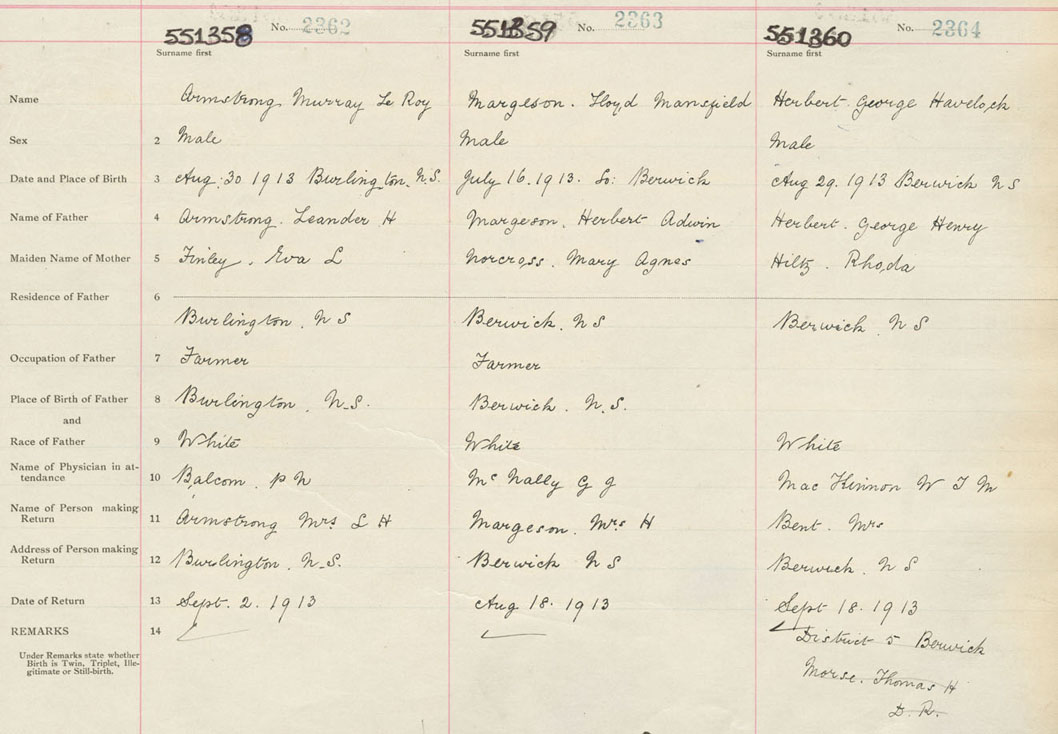 551358 No. 2362 551359 No. 2363 551360 No. 2364
Surname first Surname first Surname first
Name Armstrong Murray Le Roy Margeson. Lloyd Mansfield Herbert George Havelock
Sex 2 Male Male Male
Date and Place of Birth 3 Aug. 30 1913 Burlington, N.S. July 16. 1913. So: Berwick Aug 29. 1913 Berwick N S
Name of Father 4 Armstrong. Leander H Margeson. Herbert Adwin Herbert. George Henry
Maiden Name of Mother 5 Finley. Eva L Norcross. Mary Agnes Hiltz. Rhoda
Residence of Father 6
Burlington. N S Berwick. N S Berwick. N S
Occupation of Father 7 Farmer Farmer
Place of Birth of Father 8 Burlington. N.S. Berwick. N.S.
and
Race of Father 9 White White White
Name of Physician in at-
tendance 10 Balcom. P N Mc Nally G J Mac Kinnon W T M
Name of Person making
Return 11 Armstrong Mrs L H Margeson. Mrs H Bent. Mrs
Address of Person making
Return 12 Burlington. N.S. Berwick N S Berwick. N S
Date of Return 13 Sept. 2. 1913 Aug 18. 1913 Sept 18. 1913
REMARKS 14 District 5 Berwick
Under Remarks state whether
Birth is Twin, Triplet, Ille-
gitimate or Still-birth.
Morse. Thomas H
D. R.